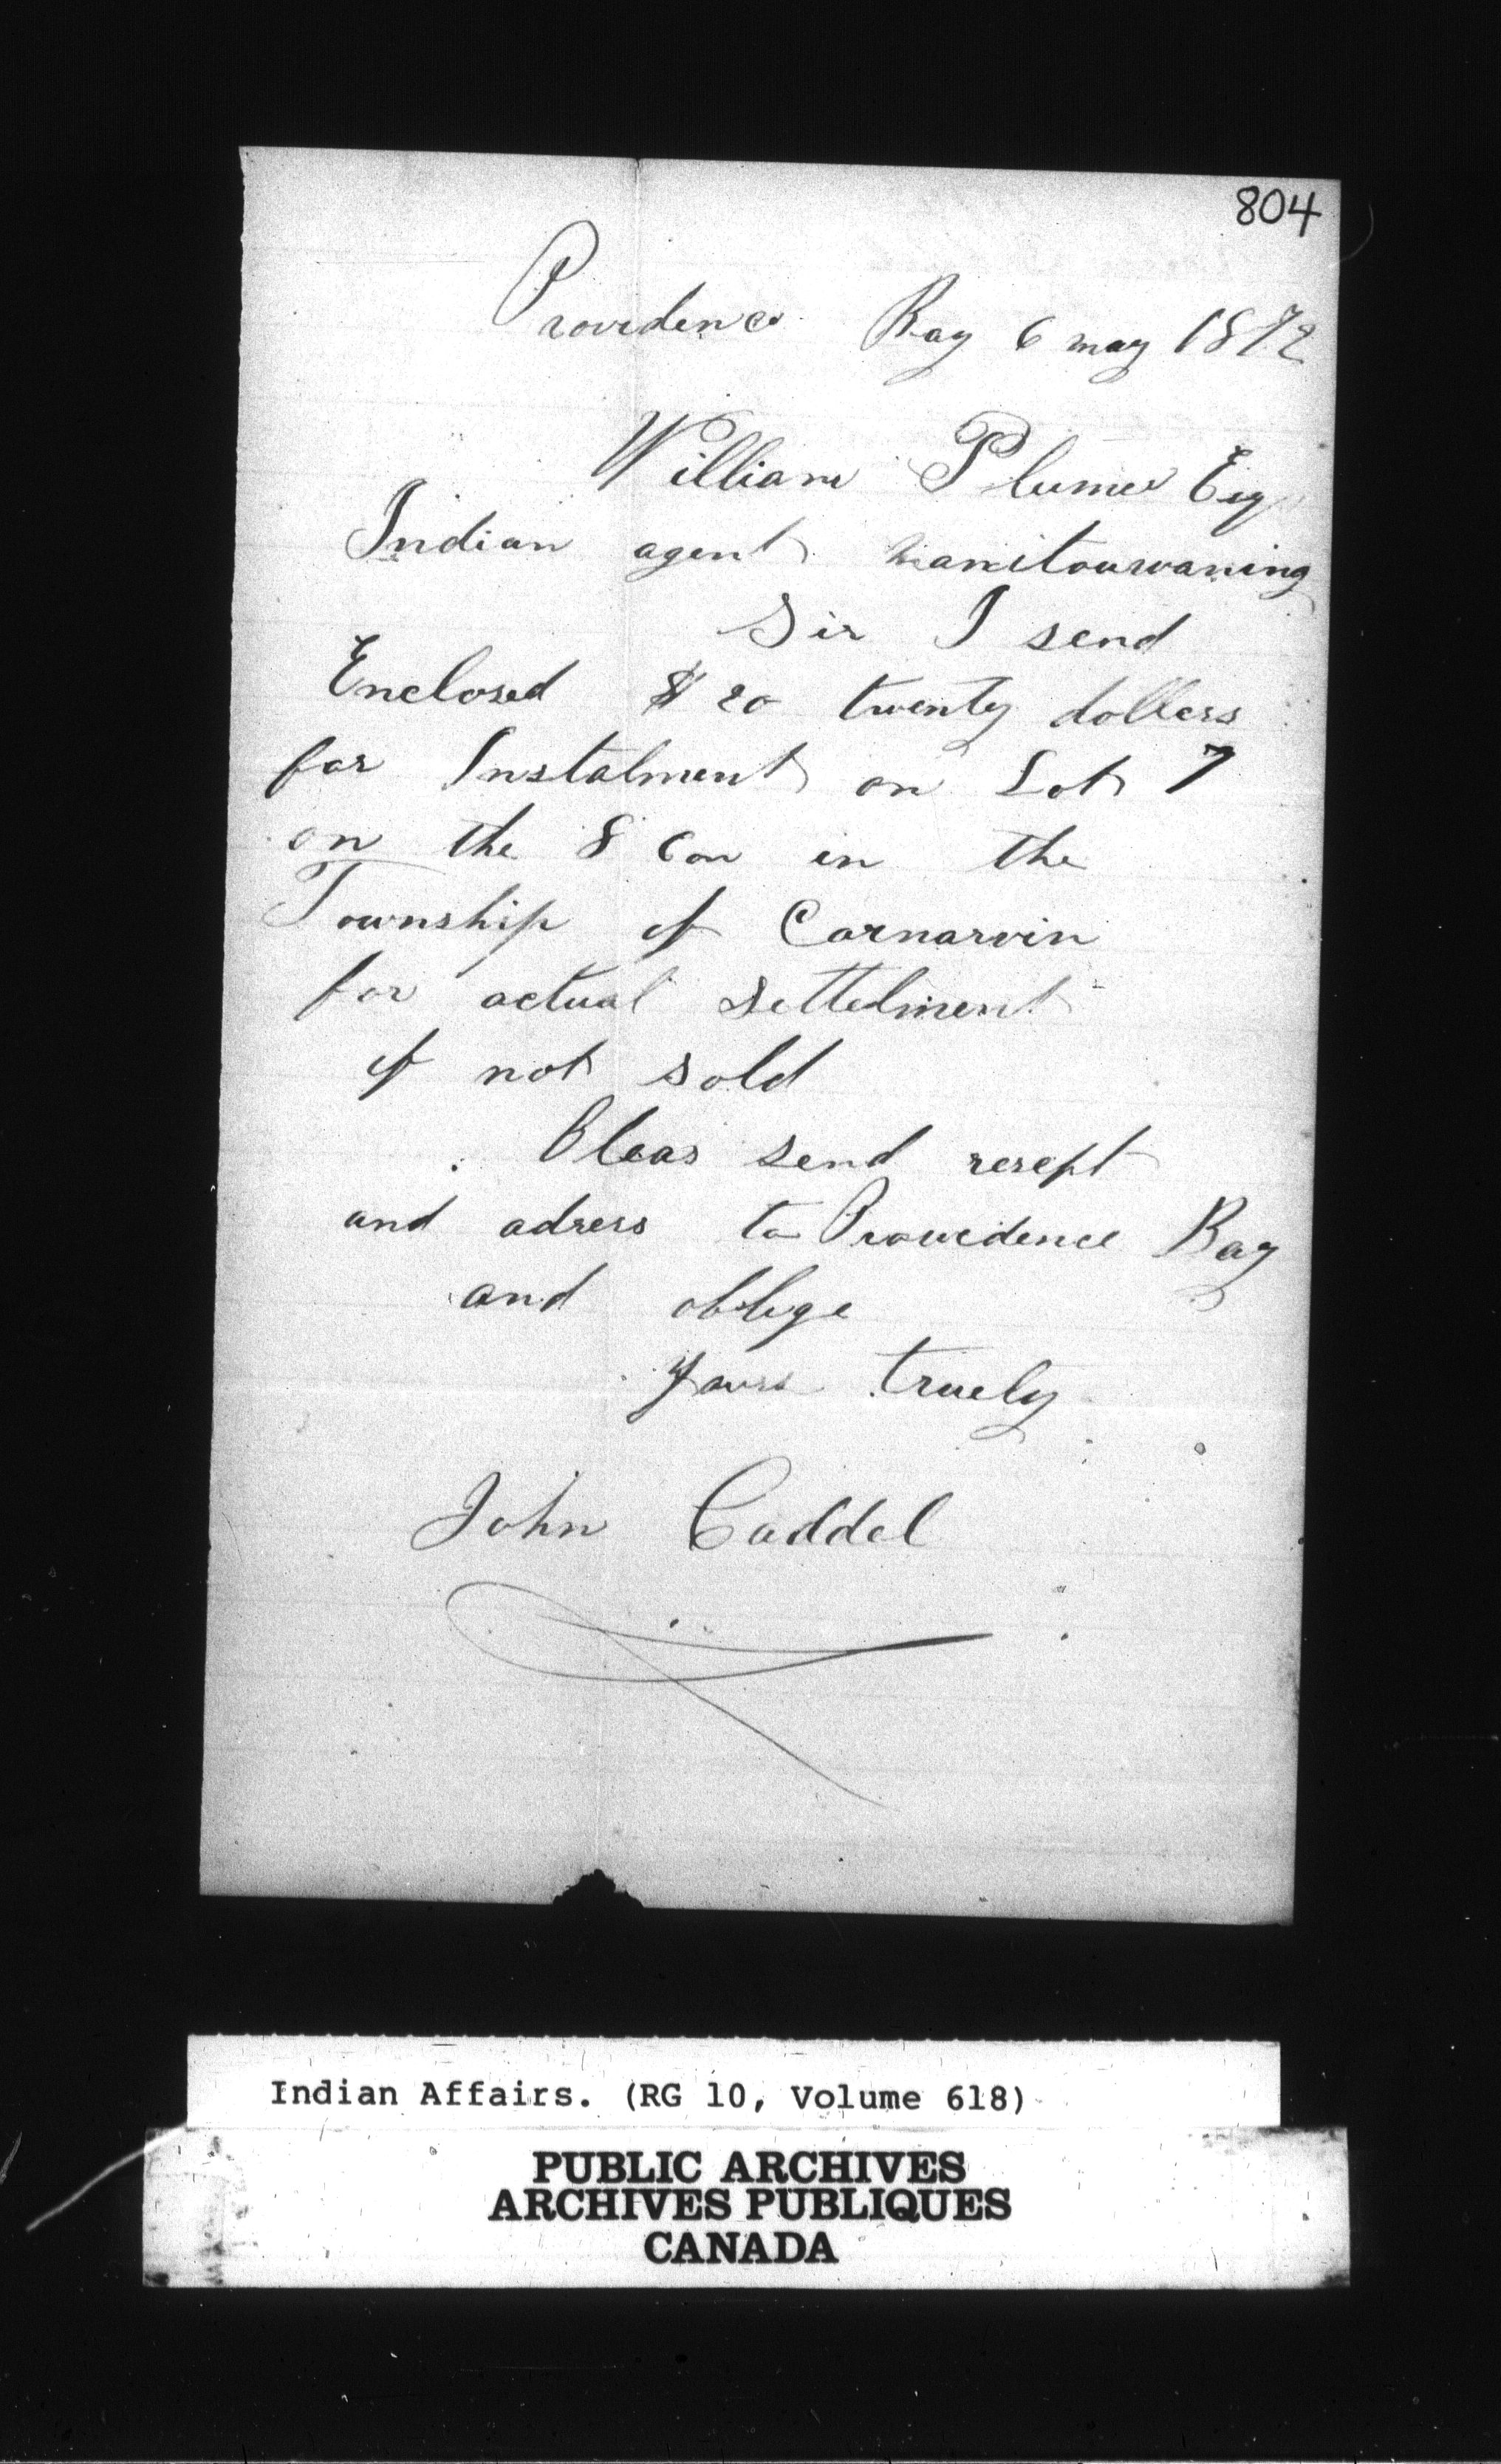 804
Providence Bay 6 may 1872
William Plumer Esq
Indian agent manitouwaning
Sir I send
Enclosed $20 twenty dollers
for Instalment on Lot 7
on the 8 Con in the
Township of Carnarvin
for actual settelment
if not sold
Pleas send resept
and adress to Providence Bay
and oblige
yours truely
John Caddel
Indian Affairs. (RG 10, Volume 618)
PUBLIC ARCHIVES
ARCHIVES PUBLIQUES
CANADA